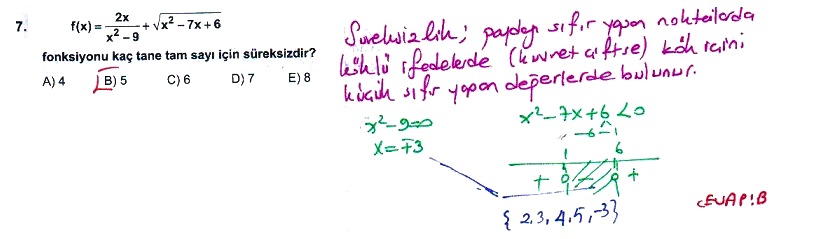 7. f(x) = 2x / x² − 9 + √x² − 7x + 6
fonksiyonu kaç tane tam sayı için süreksizdir?
A) 4 B) 5 C) 6 D) 7 E) 8
Süreksizlik; paydayı sıfır yapan noktalarda
köklü ifadelerde (kuvvet çiftse) kök içini
küçük sıfır yapan değerlerde bulunur.
x² − 9 = 0
x = ∓3
x² − 7x + 6 < 0
−6 −1
1 6
+ 0 − 0 +
{ 2, 3, 4, 5, −3 }
CEVAP: B